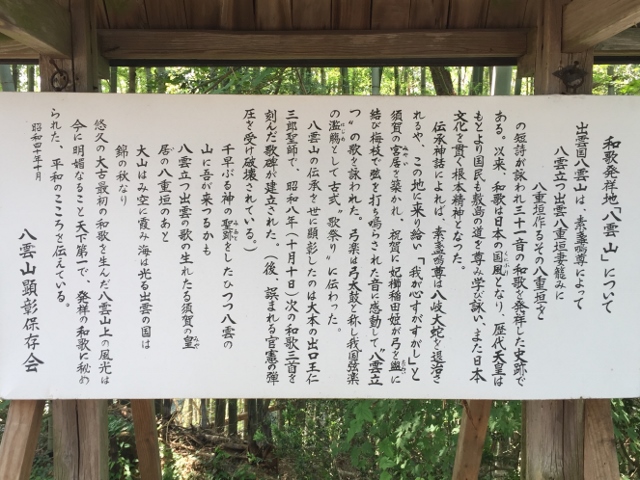 和歌発祥地「八雲山」について
出雲国八雲山は、素盞嗚尊によって
八雲立つ出雲八重垣妻籠みに
八重垣作るその八重垣を
の短詩が詠われ三十一音の和歌を発祥した史跡で
ある。以来、和歌は日本の国風となり、歴代天皇は
もとより国民も敷島の道を尊み学び詠い、また日本
文化を貫く根本精神となった。
伝承神話によれば、素盞嗚尊は八岐大蛇を退治さ
れるや、この地に来り給い「我が心すがすがし」と
須賀の宮居を築かれ、祝賀に妃櫛稲田姫が弓を
結び梅枝で弦を打ち鳴らされた音に感動して〝八雲立
つ〟の歌を詠われた。弓楽は弓太鼓と称し我国弦楽
の濫觴として古式〝歌祭り〟に伝わった。
八雲山の伝承を世に顕彰したのは大本の出口王仁
三郎聖師で、昭和八年(十月十日)次の和歌三首を
刻んだ歌碑が建立された。(後、誤まれる官憲の弾
圧を受け破壊されている。)
千早ぶる神の聖跡をしたひつつ八雲の
山に吾が来つるかも
八雲立つ出雲の歌の生れたる須賀の皇
居の八重垣のあと
大山はみ空に霞み海は光る出雲の国は
錦の秋なり
悠久の太古最初の和歌を生んだ八雲山上の風光は
今に明媚なること天下第一で、発祥の和歌に秘め
られた、平和のこころを伝えている。
昭和四十年十月
八雲山顕彰保存会